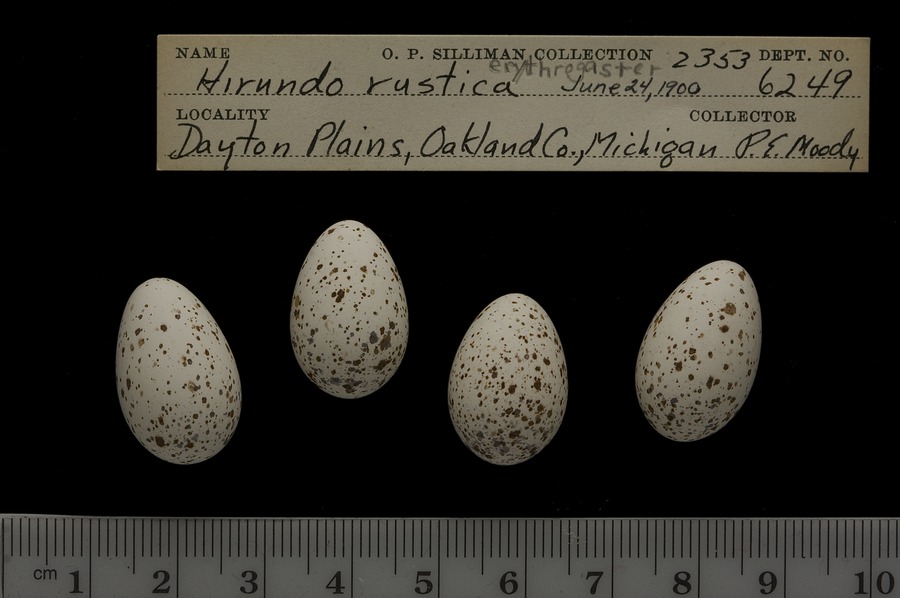 NAME O. P. SILLIMAN COLLECTION 2353 DEPT. NO.
erythrogaster
Hirundo rustica June 24, 1900 6249
LOCALITY COLLECTOR
Dayton Plains, Oakland Co., Michigan P.E. Moody
cm 1 2 3 4 5 6 7 8 9 10